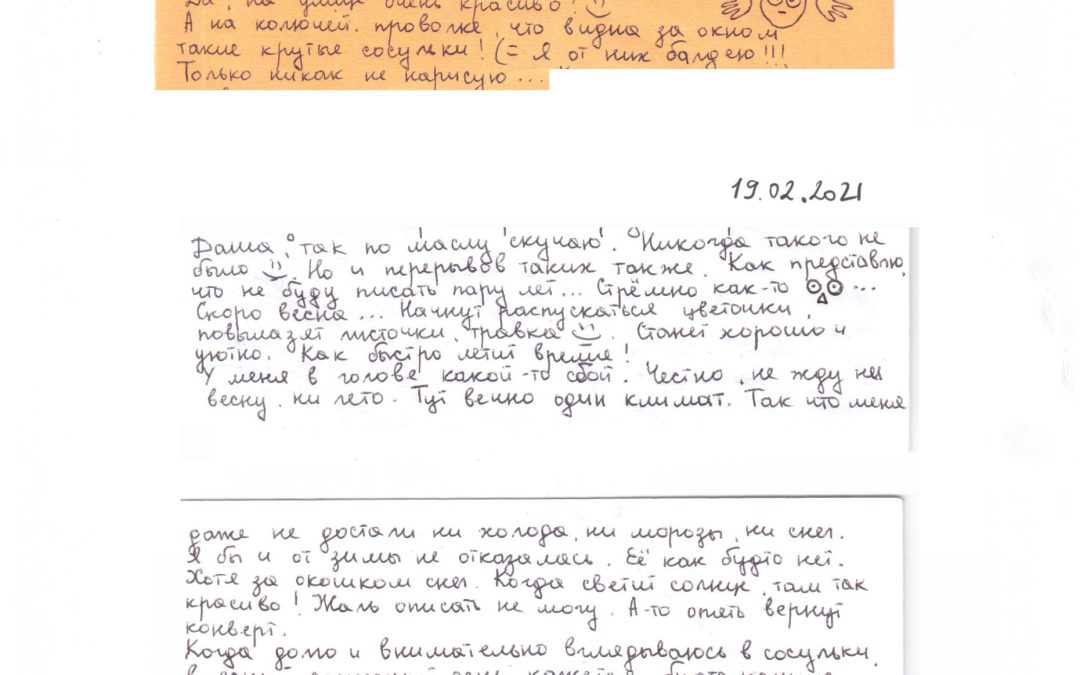 Да, на улице очень красиво!
А на колючей проволке, что видна за окном
такие крутые сосульки! (= Я от них балдею!!!
Только никак не нарисую...
19.02.2021
Даша, так по маслу 'скучаю'. Никогда такого не
было. Но и перерывов таких также. Как представлю,
что не буду писать пару лет... Стрёмно как-то ...
Скоро весна... Начнут распускаться цветочки,
повылазят листочки, травка. Станет хорошо и
уютно. Как быстро летит время!
У меня в голове какой-то сбой. Честно, не жду ни
весну, ни лето. Тут вечно один климат. Так что меня
даже не достали ни холода, ни морозы, ни снег.
Я бы и от зимы не отказалась. Её как будто нет.
Хотя за окошком снег. Когда светит солнце, там так
красиво! Жаль описать не могу. А-то опять вернут
конверт.
Когда долго и внимательно вглядываюсь в сосульки,